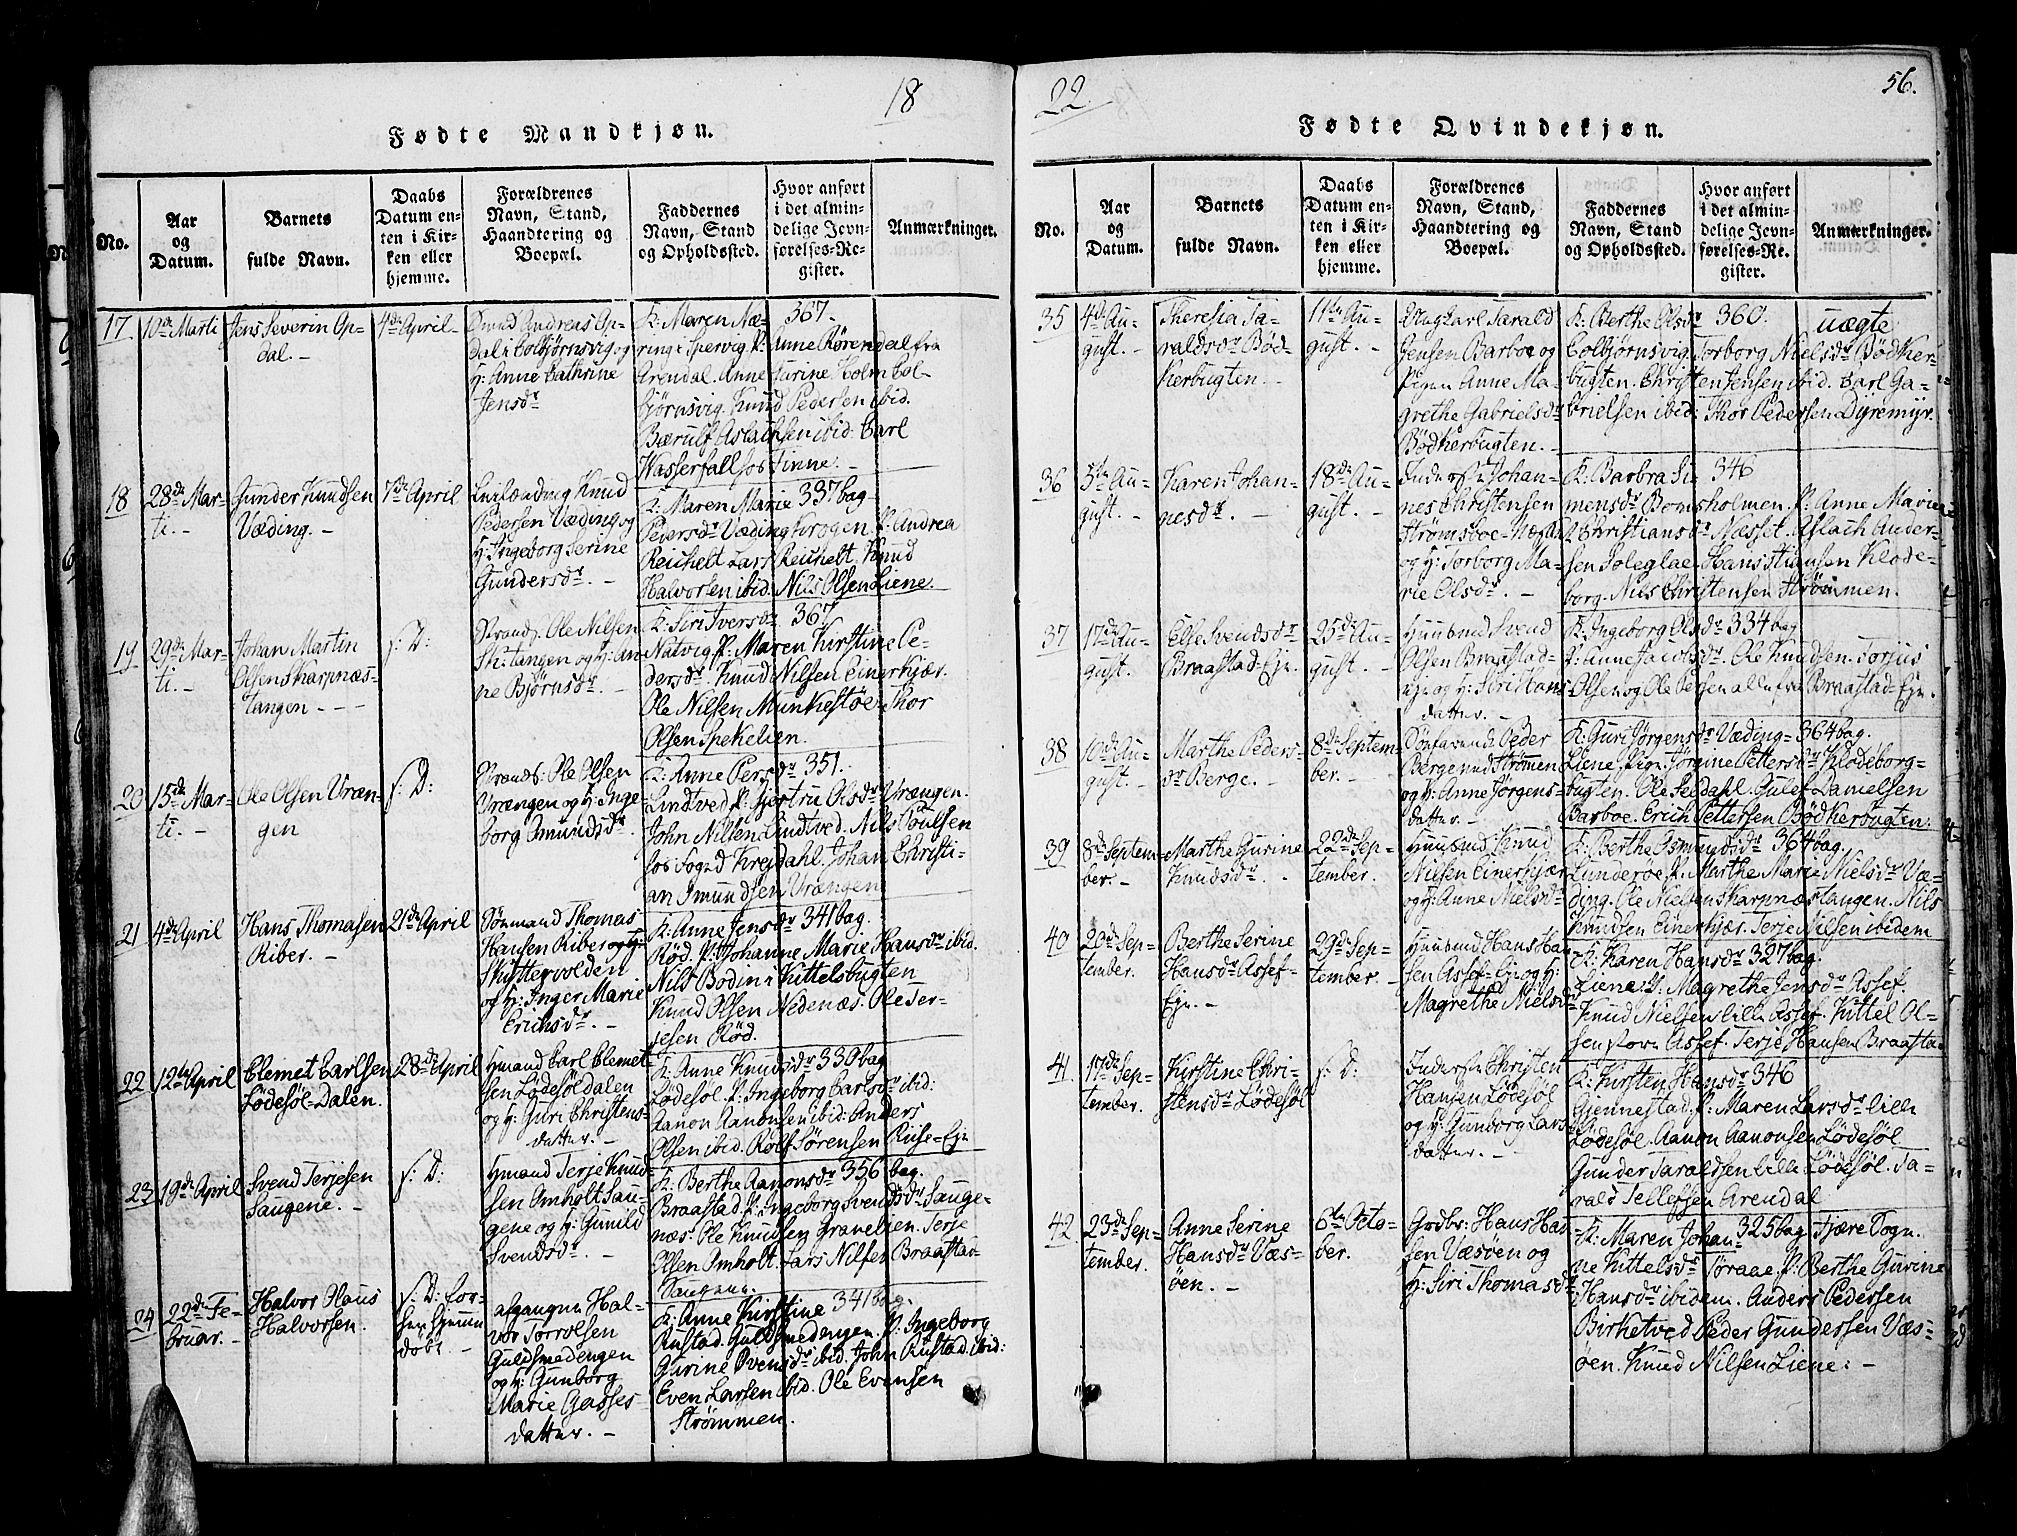 18
Fødte Mandkjøn.
No.
Aar
og
Datum.
Barnets
fulde Navn.
Daabs
Datum en-
ten i Kir-
ken eller
hjemme.
Forældrenes
Navn, Stand,
Haandtering og
Boepæl.
Faddernes
Navn, Stand
og Opholdssted.
Hvor anført
i det almin-
delige Jevn-
førelses-Re-
gister.
Anmærkninger.
17
10de Marti
Jens Severin Op-
dal. -
4de April -
Amund Andreas Op-
dal i Colbjørnsvig og
H: Anne Cathrine
Jensdr
K: Maren Næ- 367.
ring i Spervig. P: Anne Rørendal fra
Arendal. Anne Turine Holm Col-
bjørnsvig. Knud Pedersen ibid.
Bærulf Aslachsen ibid. Carl
Wasserfall hos Tinne. -
18
28de Mar-
ti. -
Gunder Knudsen
Væding. -
7de April
Knud
Pedersen Væding og
H: Ingeborg Serine
Gundersdr. -
K: Maren Marie 337 bag
Pedersdr Væding Krogen. P: Andrea
Reichelt Lars Reichelt. Knud
Halvorsen ibid. Nils Olsen Liene.
19
29de Mar-
ti. -
Johan Martin
Olsen Skarpnæs-
tangen - - -
s: D:
Strands: Ole Nilsen
Sk:tangen og H: An-
ne Bjørnsdr. -
K: Siri Iversdr 367
Natvig P: Maren Kirstine Pe-
dersdr. Knud Nilsen Einerkjær.
Ole Nilsen Munkestøe. Thor
Olsen Spekelien.
20
15de Mar-
ti. -
Ole Olsen Vræn-
gen
s: D:
Strands: Ole Olsen
Vrængen og H: Inge-
borg Omundsdr.
K: Anne Persdr 351.
Lindtved P: Gjertru Olsdr Vrængen.
John Nilsen Lindtved. Nils Poulsen
hos Sogned Krejdahl. Johan Christi-
an Omundsen Vrængen
21
4de April
Hans Thomasen
Riber. -
21de April
Sømand Thomas
Hansen Riber og H:
Skyttervolden
og H: Inger Marie
Erichsdr. -
K: Anne Jensdr 341 bag.
Rød. P: Johanne Marie Hansdr ibid.
Nils Bodin i Kittelsbugten
Knud Olsen Nedenæs. Ole Ter-
jesen Rød.
22
12te April
Clemet Carlsen
Lødesøl-Dalen.
28de April
Hmand Carl Clemet-
sen Lødesøldalen
og H: Guri Christens-
datter. -
K: Anne Knudsdr 330 bag
Lødesøl. P: Ingeborg Carlsdr ibid:
Aanon Aanonsen ibid. Anders
Olsen ibid. Rolf Sørensen Riise-Eje
23
19de April
Svend Terjesen
Saugene. -
s: D:
Hmand Terje Knud-
sen Omholt Sau-
gene og H: Gunild
Svendsdr. -
K: Berthe Aanonsdr 356 bag.
Braastad. P: Ingeborg Svendsdr Sauge-
næs. Ole Knudsen Gravelien. Terje
Olsen Omholt. Lars Nilsen Braastad-
Saugene.
24
22de Fe-
bruar. -
Halvor Olaus
Halvorsen.
s: D: for-
her hjemme
døbt. -
afgangne Hal-
vor Torvolsen
Guldsmedengen
og H: Gunborg
Marie Gasses-
datter. -
K: Anne Kirstine 341 bag.
Rustad. Guldsmedengen. P: Ingeborg
Gurine Svensdr ibid. John Rustad ibid:
Even Larsen ibid. Ole Evensen
Strømmen.
22.
56.
Fødte Qvindekjøn.
No.
Aar
og
Datum.
Barnets
fulde Navn.
Daabs
Datum en-
ten i Kir-
ken eller
hjemme.
Forældrenes
Navn, Stand,
Haandtering og
Boepæl.
Faddernes
Navn, Stand
og Opholdssted.
Hvor anført
i det almin-
delige Jevn-
førelses-Re-
gister.
Anmærkninger.
35
4de Au-
gust. -
Theresia Ta-
raldsdr Bød-
kerbugten. -
11te Au-
gust. -
Ungkarl Tarald
Jensen Barboe og
Pigen Anne Ma-
grethe Gabrielsdr
Bødkerbugten. -
K: Berthe Olsdr 360. uægte
Colbjørnsvig. Torborg Nielsdr Bødker-
bugten. Christen Jensen ibid. Carl Ga-
brielsen ibid: Thor Pedersen Dyremyr.
36
5te Au-
gust. -
Karen Johan-
nesdr. -
18de Au-
gust. -
Inderste Johan-
nes Christensen
Strømsboe-Næset
og H: Torborg Ma-
rie Olsdr. -
K: Barbra Si- 346
mensdr Bomsholmen. P: Anne Marie
Christiansdr Næsset. Aslach Ander-
sen Soleglae. Hans Stiansen Klode-
borg. Nils Christensen Strømmen.
37
17de Au-
gust.
Else Svendsdr
Braastad-Eje.
25de Au-
gust. -
Huusmd Svend
Olsen Braastad-
eje og H: Siri Hans-
datter. -
K: Ingeborg Olsdr 334 bag
P: Anne Jacobsdr. Ole Knudsen. Torjus
Olsen og Ole Persen alle fra Braastad-Eje.
38
10de Au-
gust. -
Marthe Peders-
dr Berge. -
8de Septem-
ber. -
Søefarende Peder
Berge ved Strømen
og H: Anne Jørgens-
datter. -
K: Guri Jørgensdr Væding- 364 bag.
Liene. Pige Jørgine Pettersdr Klodeborg-
bugten. Ole Seldahl. Gulef Danielsen
Barboe. Erich Pettersen Bødkerbugten.
39
8de Septem-
ber. -
Marthe Gurine
Knudsdr. -
22de Sep-
tember.
Huusmd Knud
Nilsen Einerkjær
og H: Anne Nielsdr
K: Berthe Osmundsdr 364 bag.
Lunderoe. P: Marthe Marie Nielsdr Væ-
ding. Ole Nielsen Skarpnæstangen. Nils
Knudsen Einerkjær. Terje Nilsen ibidem
40
20de Sep-
tember.
Berthe Serine
Hansdr Assef-
Eje. -
29de Sep-
tember. -
Huusmd Hans Han-
sen Assef-Eje og H:
Magrethe Nielsdr
K: Karen Hansdr 327 bag.
Liene. P: Magrethe Jensdr Assef.
Knud Nielsen lille Assef. Kittel Ol-
sen store Assef. Terje Hansen Braastad
41.
17de Sep-
tember.
Kirstine Chri-
stensdr Lødesøl
s: D:
Inderste Christen
Hansen Lødesøl
og H: Gunborg Lars-
datter. -
K: Kirsten Hansdr 346
Gjennestad. P: Maren Larsdr lille
Lødesøl. Aanon Aanonsen Lødesøl
Gunder Taraldsen lille Lødesøl. Ta-
rald Tellefsen Arendal
42
23de Sep-
tember.
Anne Serine
Hansdr Væs-
øen. -
6te Octo-
ber.
Grdbr: Hans Han-
sen Væsøen og
H: Siri Thomasdr
K: Maren Johan- 325 bag Fjære Sogn.
ne Kittelsdr Tøraae P: Berthe Gurine
Hansdr ibidem. Anders Pedersen
Birketved Peder Gundersen Væs-
øen. Knud Nilsen Liene: -